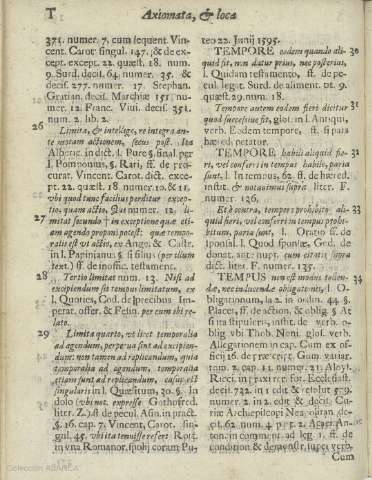 T Axiomata, & loca
375. numer. 7. cum sequent. Vin-
cent. Carot singul. 147. & de ex-
cept. except. 22. quæst. 18. num.
9. Surd. decis. 64. numer. 35. &
decis. 277. numer. 17. Stephan.
Gratian. decis. Marchiæ 151. nu-
mer. 12. Franc. Viui. decis. 351.
num. 2. lib. 2.
26 Limita, & intellige, re integra an-
te motam actionem, secus post. Ita
Alberic. in dict. l. Pure §. final. per
l. Pomponius, §. Rati, ff. de pro-
curat. Vincent. Carot. dict. except
pt. 22. quæst. 18. numer. 10. & 11.
vbi quod tunc facilius perditur excep-
tio, quam actio,
27 limitat secundo in exceptione quæ eti-
am agendo proponi potest: quæ tempo-
ralis est vti actio, ex Ango. & Castr.
in l. Papinianus §. si filius
text.) ff. de inoffic. testament.
28 Tertio limitat num. 13. Nisi ad
excipiendum sit tempus limitatum, ex
l. Quoties, God. de precibus Im-
perat. offer. & Felin. per eum ibi re-
lato.
29 Limita quarto, vt licet temporalia
ad agendum, perpetua sunt ad excipien-
dum: non tamen ad replicandum, quia
temporalia ad agendum, temporalia
etiam sunt ad replicandum, casus est
singularis in l. Quæsitum, 30. §. In
dolo (vbi not. expresse Gothofred.
liter. Z.) ff. de pecul. Asin. in pract.
§. 16. cap. 7. Vincent. Carot. sin-
gul. 45. vbi ita tenuisse refert Rotæ
in vna Romanor. spolij coram Pu-
teo 22. Junij 1595.
TEMPORE eodem quando ali- 30
quid fit, non datur prius, nec posterius,
l. Quidam testamento, ff. de pe-
cul. legat. Surd. de aliment. tit. 9.
quæst. 29. num. 18.
Tempore autem eodem fieri dicitur 31
quod successiue fit, glos. in l. Antiqui,
verb. Eodem tempore, ff. si pars
hæred. petatur.
TEMPORE habili aliquid fie- 32
ri, vel conferri in tempus habile, paria
sunt, l. In tempus, 62. ff. de hæred.
instit. & notauimus supra liter. F.
numer. 136.
Et è contra, tempore prohibito ali- 33
quid fieri, vel conferri in tempus prohi-
bitum, paria sunt, l. Oratio ff. de
sponsal. l. Quod sponsæ, God. de
donat. ante nupt. cum citatis supra
dict. liter. F. numer. 135.
TEMPUS non est modus tollen- 34
dæ, nec inducendæ obligationis, l. O-
bligationum, la 2. in ordin. 44. §.
Placet, ff. de action. & oblig. §. At
si ita stipuleris, instit. de verb. o-
blig. vbi Theb. Noni. glos. verb.
Allegationem in cap. Cum ex of-
ficij 16. de præscript. Gam. variar.
tom. 2. cap. 11. numer. 21. Aloys.
Ricci. in praxi rer. for. Ecclesiast.
decis. 732. in 1 edit. & resolut. 639.
numer. 2. in 2 edit. & decis. Cu-
riæ Archiepiscopi Neapolitan. de-
cis. 62. num. 4. part. 2. Acacr. An-
ton. in comment. ad leg. 1. ff. de
condition. & demonstr. super verb.
Cum
Colección ABARCA